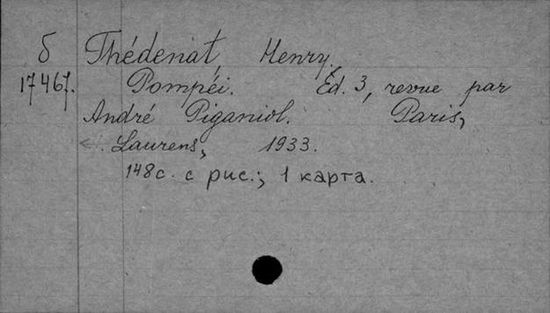 б Thédenat, Henry.
17467. Pompéi. Éd. 3, revue par
André Piganiol. Paris,
Laurens, 1933.
148с. с рис.; 1 карта.